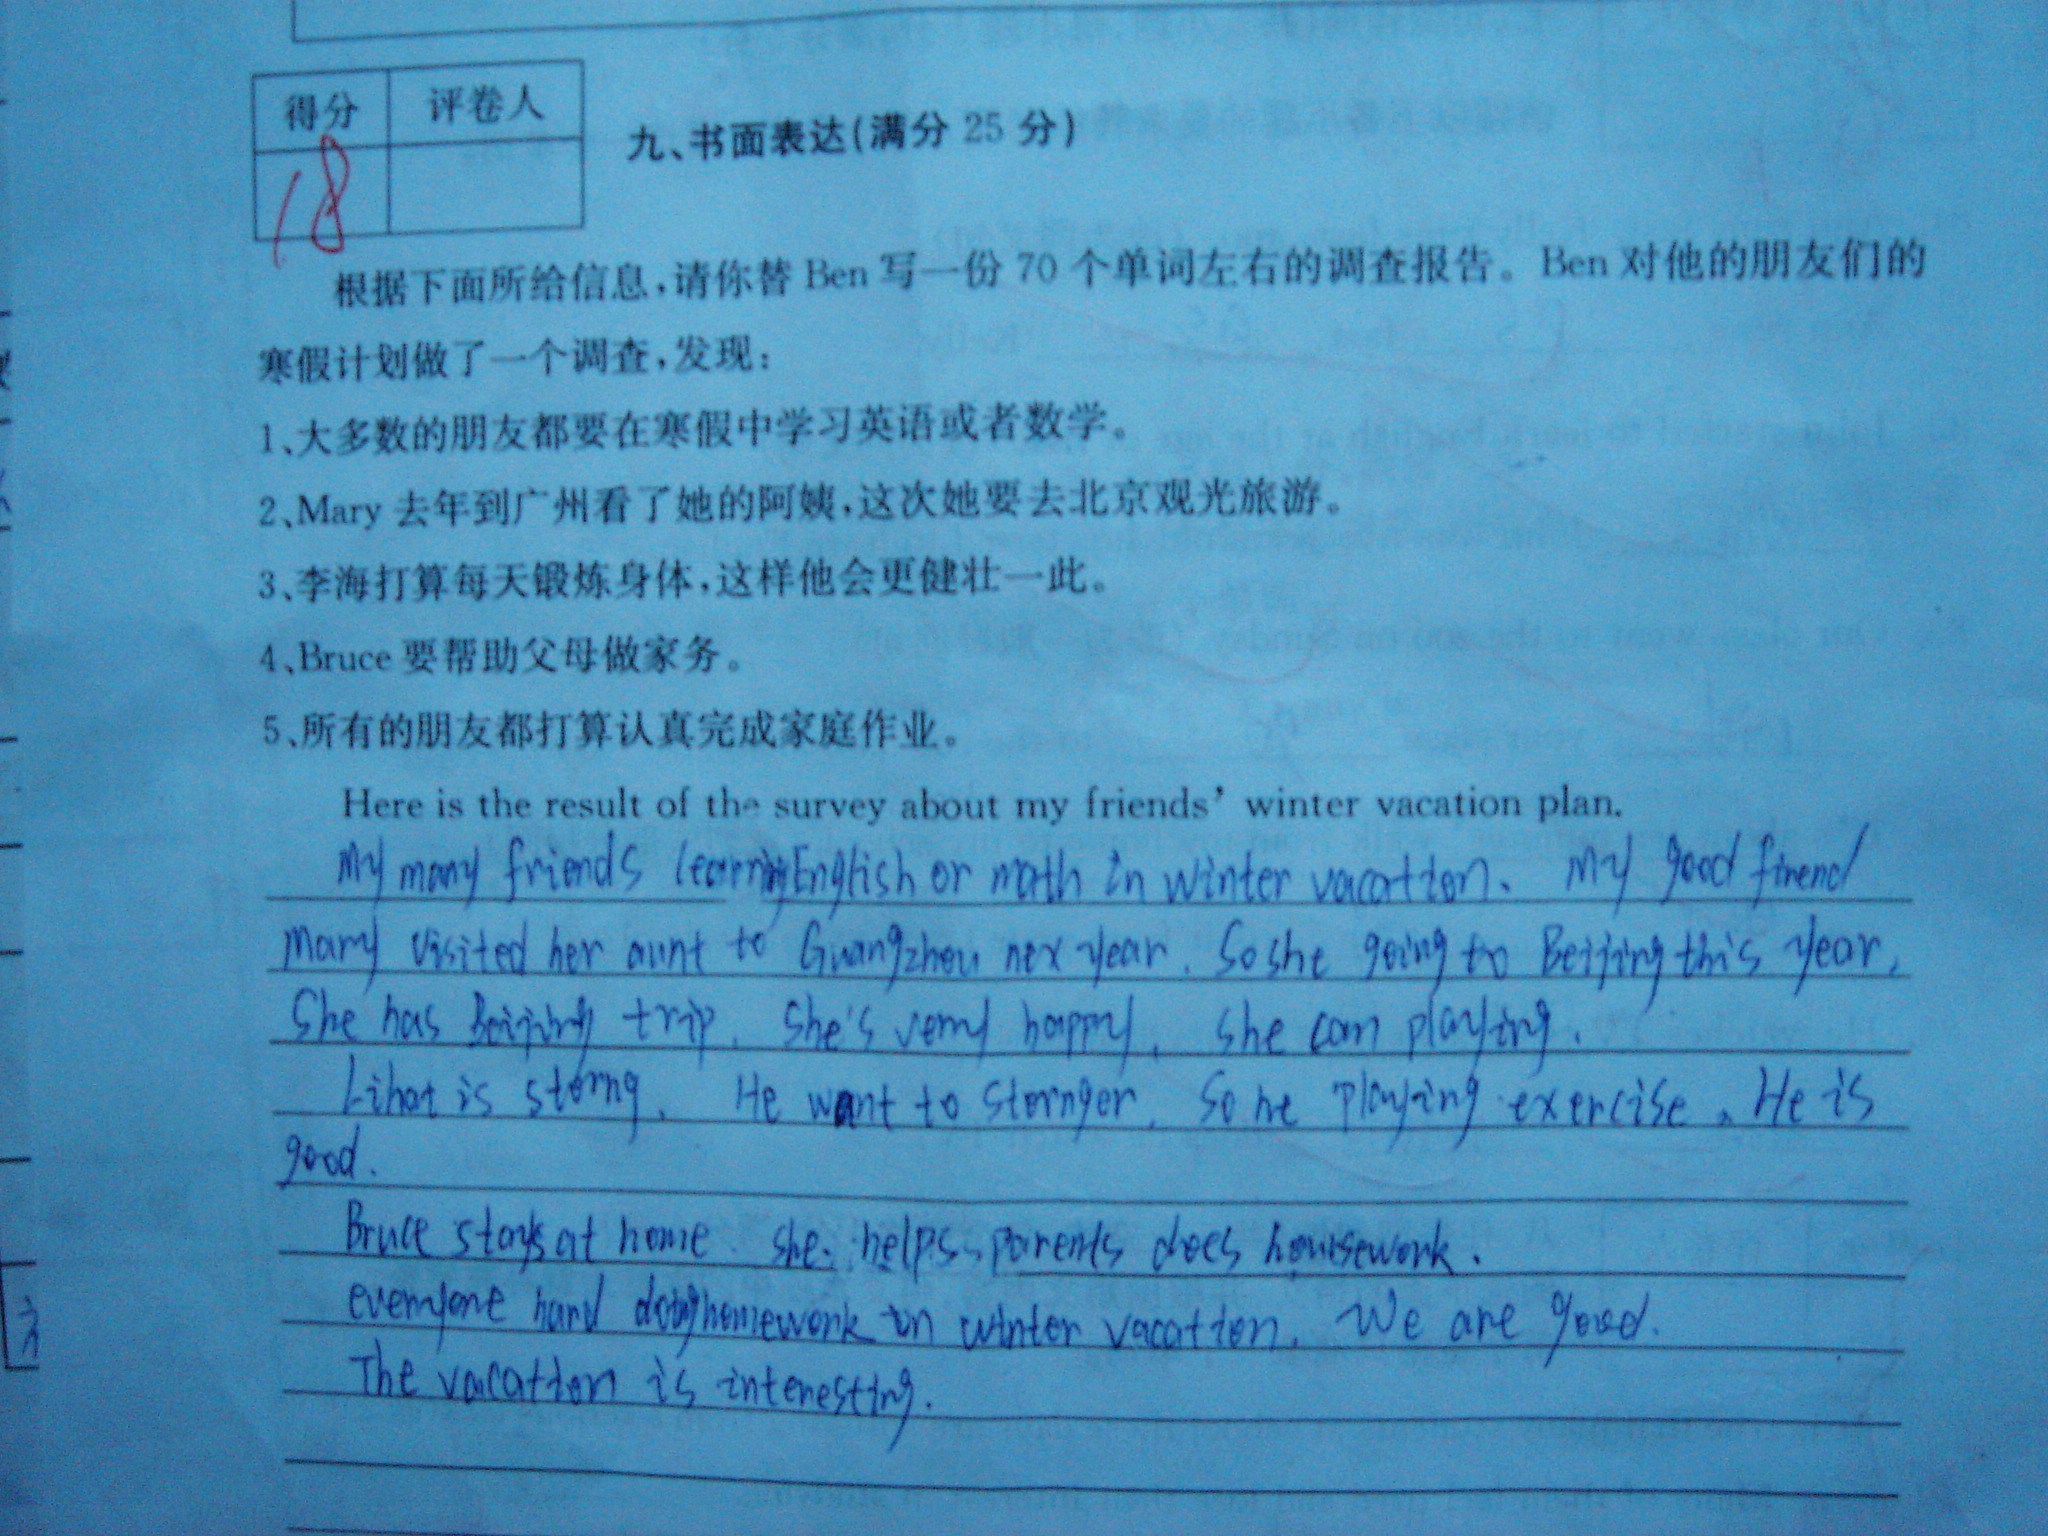 得分 评卷人
18
九、书面表达(满分 25 分)
根据下面所给信息,请你替 Ben 写一份 70 个单词左右的调查报告。Ben 对他的朋友们的
寒假计划做了一个调查,发现:
1、大多数的朋友都要在寒假中学习英语或者数学。
2、Mary 去年到广州看了她的阿姨,这次她要去北京观光旅游。
3、李海打算每天锻炼身体,这样他会更健壮一此。
4、Bruce 要帮助父母做家务。
5、所有的朋友都打算认真完成家庭作业。
Here is the result of the survey about my friends' winter vacation plan.
My many friends learning English or math in winter vacation. My good firend
Mary visited her aunt to Guangzhou nex year. So she going to Beijing this year,
She has Beijing trip. She's very happy. she can playing.
Lihai is storng. He want to stornger. So he playing exercise. He is
good.
Bruce stays at home. she. helps parents does housework.
everyone hard doing homework in winter vacation. We are good.
The vacation is interesting.